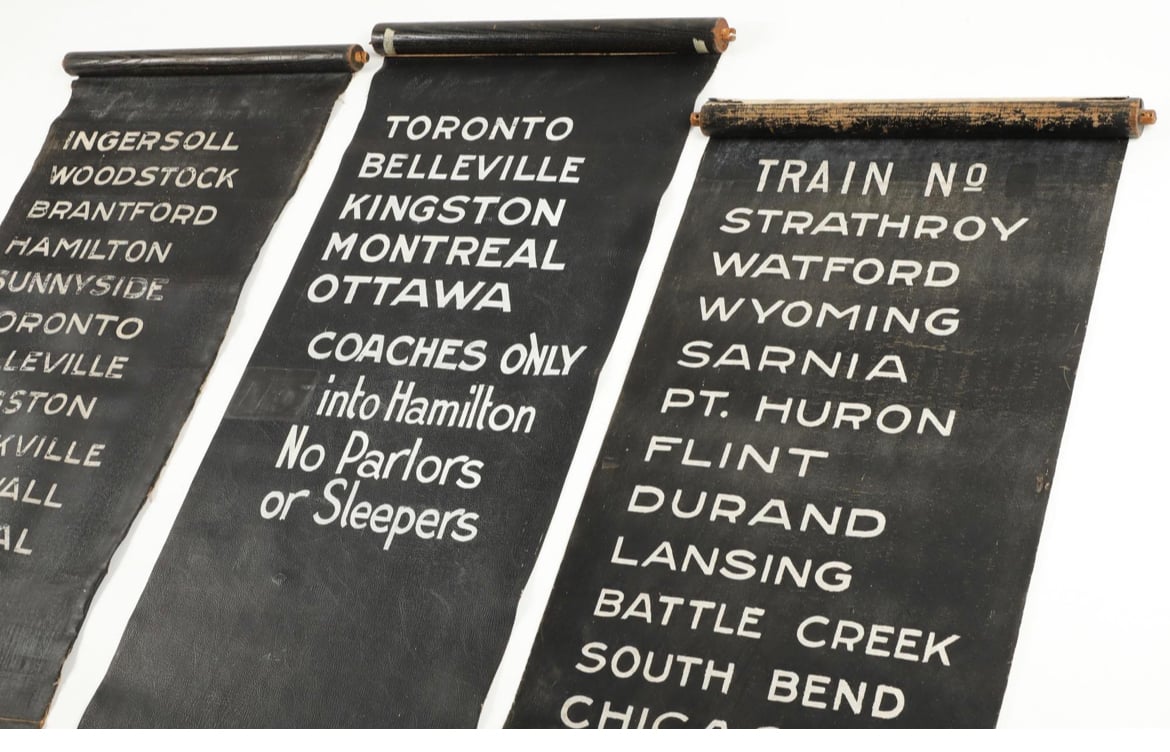 INGERSOLL
WOODSTOCK
BRANTFORD
HAMILTON
SUNNYSIDE
ORONTO
LLEVILLE
GSTON
KVILLE
WALL
AL
TORONTO
BELLEVILLE
KINGSTON
MONTREAL
OTTAWA
COACHES ONLY
into Hamilton
No Parlors
or Sleepers
TRAIN Nº
STRATHROY
WATFORD
WYOMING
SARNIA
PT. HURON
FLINT
DURAND
LANSING
BATTLE CREEK
SOUTH BEND
CHICAGO